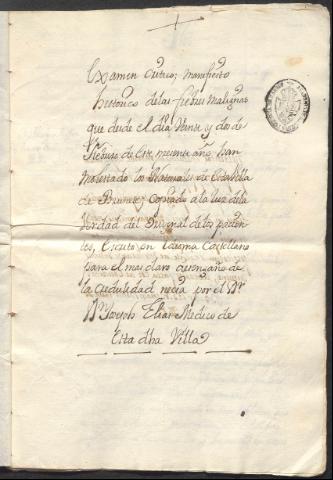 Examen Critico; manifiesto
historico de las fiebres malignas
que desde el dia Veinte y dos de
Febrero de este presente año han
molestado los Naturales de esta Villa
de Brunete; copiado a la luz de la
Verdad del Original de los pacien-
tes, Escrito en Idioma Castellano
para el mas claro desengaño de
la Credulidad necia por el Dr.
Dn. Joseph Elias Medico de
Esta dha Villa